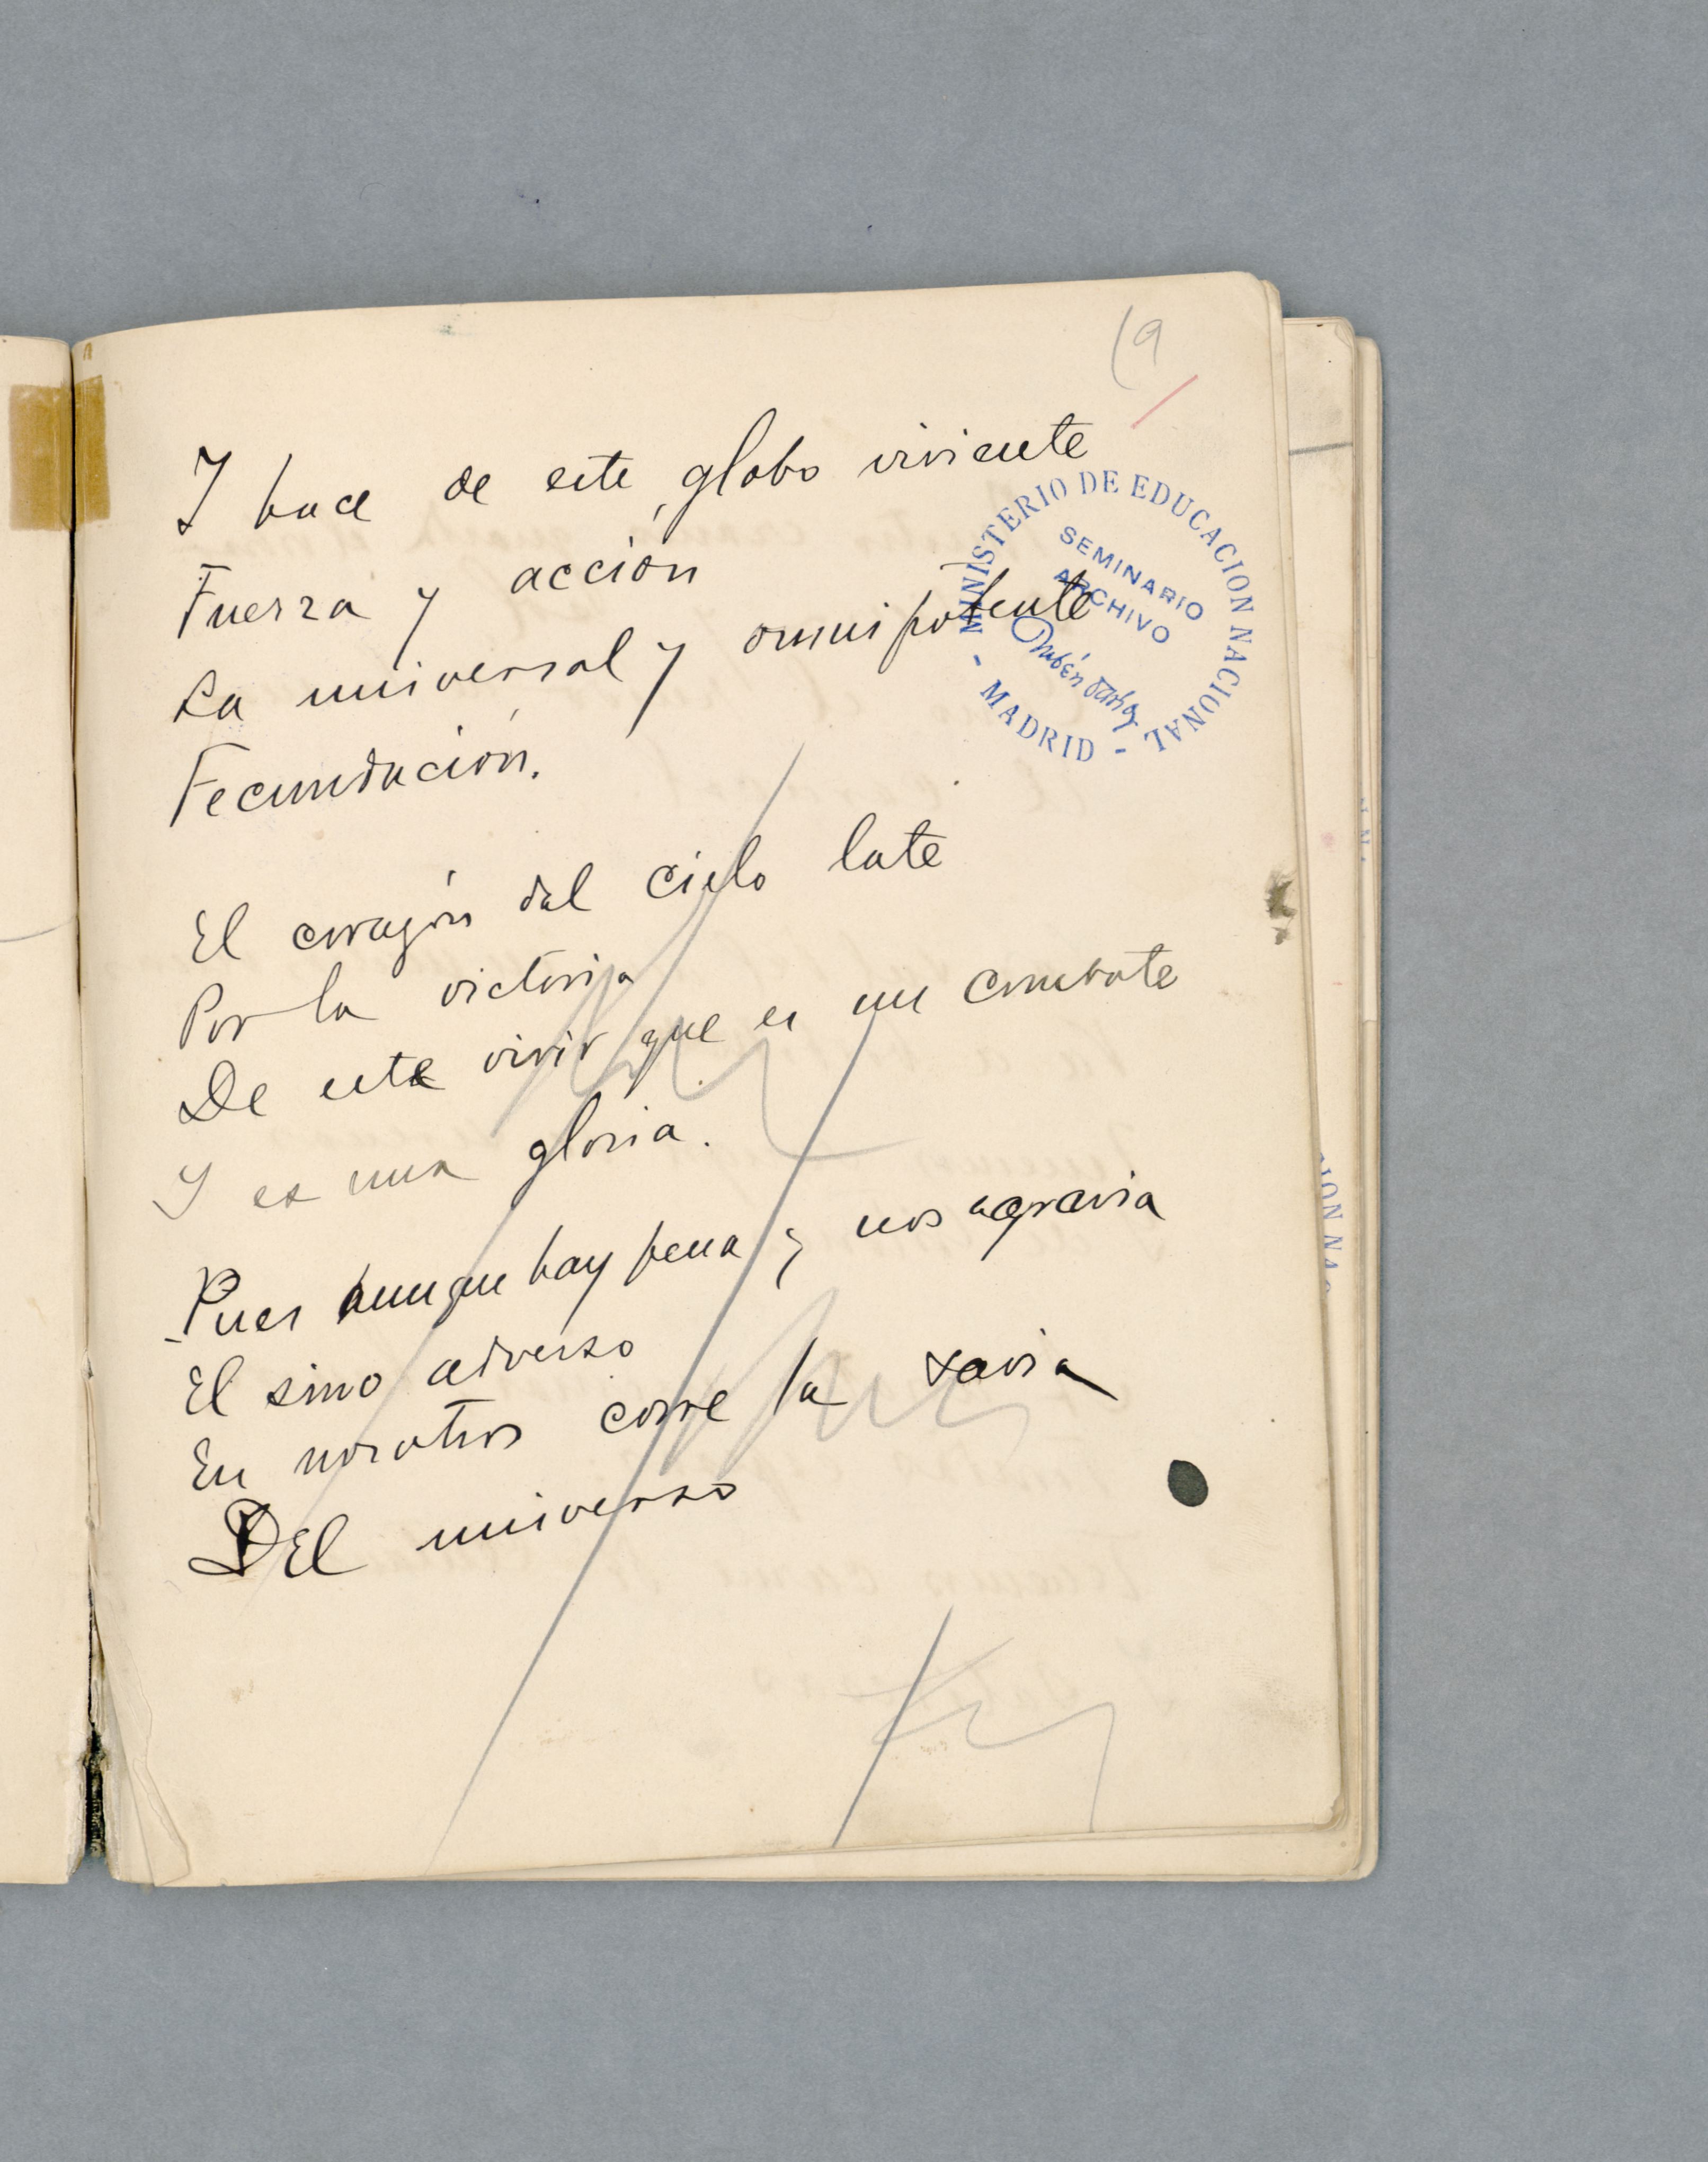 (9
Y hace de este globo viviente
Fuerza y acción
La universal y omnipotente
Fecundación.
El corazón del cielo late
Por la victoria
De este vivir que es un combate
Y es una gloria.
Pues aunque hay pena y nos agravia
El sino adverso
En nosotros corre la savia
DEl universo
MINISTERIO DE EDUCACION NACIONAL
- MADRID -
SEMINARIO
ARCHIVO
Rubén Darío
ION NAC